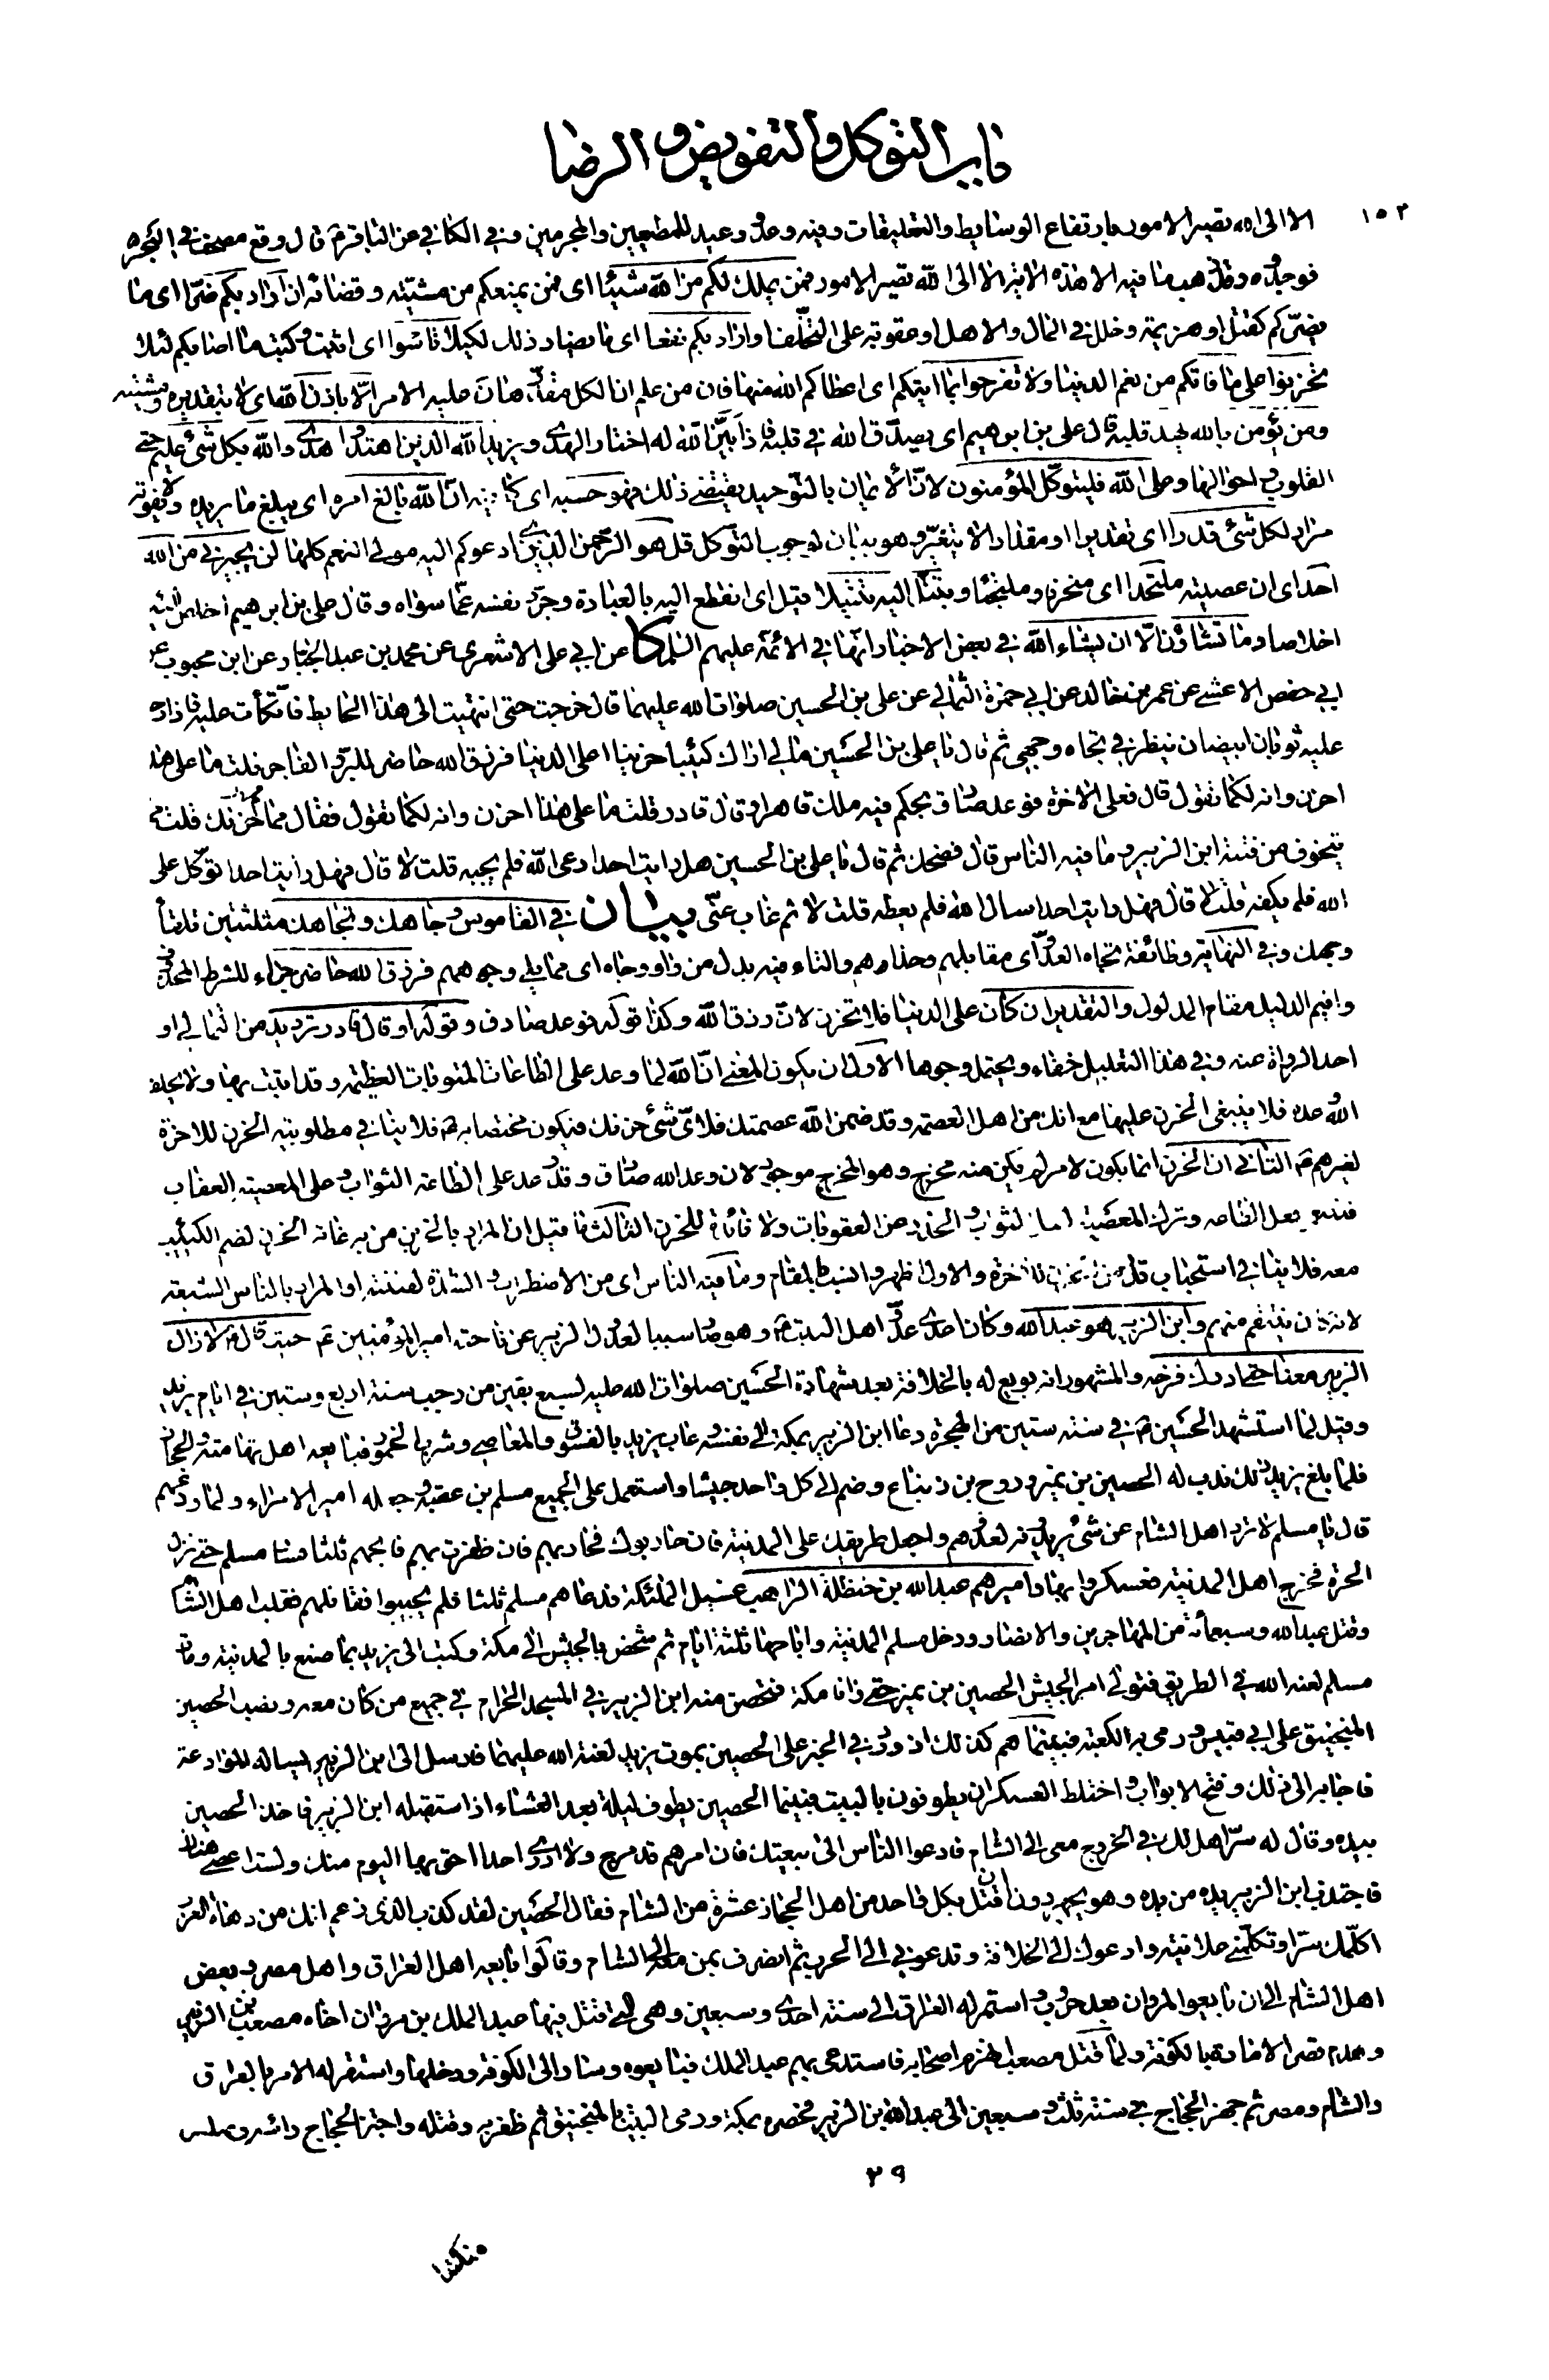 باب التوكل والتفويض والرضا
١٥٢
الا الى الله تصير الامور بارتفاع الوسايط والتعليقات وفيه وعد ووعيد للمطيعين والمجرمين وفي الكافي عن الباقر ع قال وقع مصحف في البحر
فوجدوه وقد ذهب ما فيه الا هذه الاية الا الى الله تصير الامور فمن يملك لكم من الله شيئا اى فمن يمنعكم من مشيته وقضائه ان اراد بكم ضرا اى ما
يضركم كقتل او هزيمة وخلل في المال والاهل او عقوبة على التخلف او اراد بكم نفعا اى ما يضاد ذلك لكيلا تاسوا اى اثبت وكتب ما اصابكم لئلا
تحزنوا على ما فاتكم من نعم الدنيا ولا تفرحوا بما اتيكم اى اعطاكم الله منها فان من علم ان الكل مقدر هان عليه الامر الا باذن الله اى الا بتقديره ومشيته
ومن يؤمن بالله يهد قلبه قال على بن ابرهيم اى يصدق الله في قلبه فاذا بين الله له اختار الهدى ويزيد الله الذين اهتدوا هدى والله بكل شئ عليم حتى
القلوب واحوالها وعلى الله فليتوكل المؤمنون لان الايمان بالتوحيد يقتضى ذلك فهو حسبه اى كافيه ان الله بالغ امره اى يبلغ ما يريده ولا يفوته
مراد لكل شئ قدرا اى تقديرا او مقدارا لا يتغير وهو بيان لوجوب التوكل قل هو الرحمن الذى ادعوكم اليه مولى النعم كلها لن يجيرنى من الله
احد اى ان عصيته ملتحدا اى منحرفا وملتجئا وتبتل اليه تبتيلا قيل اى انقطع اليه بالعبادة وجرد نفسه عما سواه وقال على بن ابرهيم اخلص النية
اخلاصا وما تشاؤن الا ان يشاء الله في بعض الاخبار انها في الائمة عليهم السلم كا عن ابي على الاشعرى عن محمد بن عبد الجبار عن ابن محبوب عن
ابي حفص الاعشى عن عمر بن خالد عن ابي حمزة الثمالي عن على بن الحسين صلوات الله عليهما قال خرجت حتى انتهيت الى هذا الحايط فاتكأت عليه فاذا رجل
عليه ثوبان ابيضان ينظر في تجاه وجهى ثم قال يا على بن الحسين ما لى اراك كئيبا حزينا اعلى الدنيا فرزق الله حاضر للبر والفاجر قلت ما على هذا
احزن وانه لكما تقول قال فعلى الاخرة فوعد صادق يحكم فيه ملك قاهر او قال قادر قلت ما على هذا احزن وانه لكما تقول فقال مما حزنك قلت مما
يتخوف من فتنة ابن الزبير وما فيه الناس قال فضحك ثم قال يا على بن الحسين هل رايت احدا دعى الله فلم يجبه قلت لا قال فهل رايت احدا توكل على
الله فلم يكفه قلت لا قال فهل رايت احدا سال الله فلم يعطه قلت لا ثم غاب عنى بيان في القاموس وجاهك وتجاهك مثلثتين تلقاء
وجهك وفي النهاية وطائفة تجاه العدو اى مقابلهم وحذاءهم والتاء فيه بدل من واو وجاه اى مما يلى وجوههم فرزق الله حاضر جزاء للشرط المحذوف
واقيم الدليل مقام المدلول والتقدير ان كان على الدنيا فلا تحزن لان رزق الله وكذا قوله فوعد صادق وقوله او قال قادر ترديد من الثمالى او
احد الرواة عنه وفي هذا التعليل خفاء ويحتمل وجوها الاول ان يكون المعنى ان الله لما وعد على الطاعات المثوبات العظيمة وقد اتيت بها ولا يخلف
الله وعده فلا ينبغى الحزن عليها مع انك من اهل العصمة وقد ضمن الله عصمتك فلاى شئ حزنك فيكون مختصا به ع فلا ينافي مطلوبية الحزن للاخرة
لغيرهم ع الثاني ان الحزن انما يكون لامر لم يكن منه مخرج وهو المخرج موجود لان وعد الله صادق وقد وعد على الطاعة الثواب وعلى المعصية العقاب
فينبغى فعل الطاعة وترك المعصية لنيل الثواب والحذر عن العقوبات ولا فائدة للحزن الثالث ما قيل ان المراد بالحزين من به غاية الحزن لضم الكئيب
معه فلا ينافي استحباب قدر من الحزن للاخرة والاول اظهر وانسب بالمقام وما فيه الناس اى من الاضطراب والشدة لفتنته او المراد بالناس الشيعة
لانه كان ينتقم منهم وابن الزبير هو عبد الله وكان اعدى عدو اهل البيت ع وهو صار سببا لعدول الزبير عن ناحية امير المؤمنين ع حيث قال ع لا زال
الزبير معنا حتى ادرك فرخه والمشهور انه بويع له بالخلافة بعد شهادة الحسين صلوات الله عليه لسبع بقين من رجب سنة اربع وستين في ايام يزيد
وقيل لما استشهد الحسين ع في سنة ستين من الهجرة دعا ابن الزبير بمكة الى نفسه وعاب يزيد بالفسوق والمعاصى وشرب الخمور فبايعه اهل تهامة والحجاز
فلما بلغ يزيد ذلك ندب له الحصين بن نمير وروح بن زنباع وضم الى كل واحد جيشا واستعمل على الجميع مسلم بن عقبة وجعله امير الامراء ولما ودعهم
قال يا مسلم لا ترد اهل الشام عن شئ يريدونه لعدوهم واجعل طريقك على المدينة فان حاربوك فحاربهم فان ظفرت بهم فابحهم ثلثا فسار مسلم حتى نزل
الحرة فخرج اهل المدينة فعسكروا بها واميرهم عبد الله بن حنظلة الراهب غسيل الملئكة فدعاهم مسلم ثلثا فلم يجيبوا فقاتلهم فغلب اهل الشام
وقتل عبد الله وسبعمائة من المهاجرين والانصار ودخل مسلم المدينة واباحها ثلثة ايام ثم شخص بالجيش الى مكة وكتب الى يزيد بما صنع بالمدينة ومات
مسلم لعنه الله في الطريق فتولى امر الجيش الحصين بن نمير حتى وافا مكة فتحصن منه ابن الزبير في المسجد الحرام في جميع من كان معه ونصب الحصين
المنجنيق على ابي قبيس ورمى به الكعبة فبينما هم كذلك اذ ورد في الخبر على الحصين بموت يزيد لعنة الله عليهما فارسل الى ابن الزبير يساله الموادعة
فاجابه الى ذلك وفتح الابواب واختلط العسكران يطوفون بالبيت فبينما الحصين يطوف ليلة بعد العشاء اذ استقبله ابن الزبير فاخذ الحصين
بيده وقال له سرا هل لك في الخروج معى الى الشام فادعوا الناس الى بيعتك فان امرهم قد مرج ولا ادرى احدا احق بها اليوم منك ولست اعصى هناك
فاجتذب ابن الزبير يده من يده وهو يجهر دون ان اقتل بكل واحد من اهل الحجاز عشرة من الشام فقال الحصين لقد كذب الذى زعم انك من دهاة العرب
اكلمك سرا وتكلمنى علانية وادعوك الى الخلافة وتدعونى الى الحرب ثم انصرف بمن معه الى الشام وقالوا بايعه اهل العراق واهل مصر وبعض
اهل الشام الى ان بايعوا لمروان بعد حروب واستمر له العراق الى سنة احدى وسبعين وهى التى قتل فيها عبد الملك بن مروان اخاه مصعب بن الزبير
وهدم قصر الامارة بالكوفة ولما قتل مصعب انهزم اصحابه فاستدعى بهم عبد الملك فبايعوه وسار الى الكوفة ودخلها واستقر له الامر بالعراق
والشام ومصر ثم جهز الحجاج في سنة ثلث وسبعين الى عبد الله بن الزبير فحصره بمكة ورمى البيت بالمنجنيق ثم ظفر به وقتله واجتز الحجاج راسه وصلبه
٢٩
منكسا